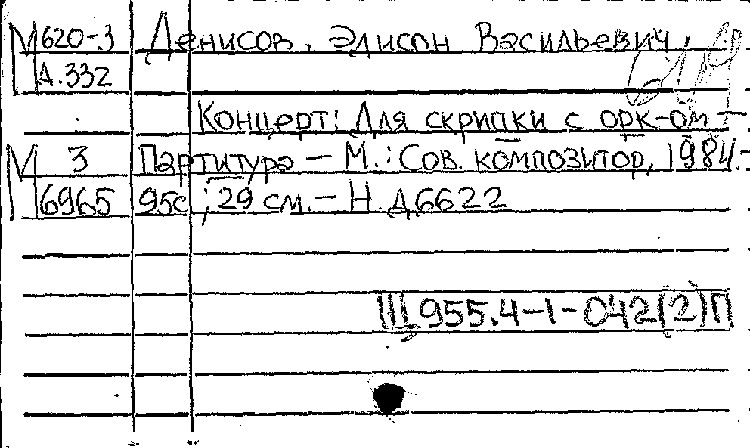 М620-3 Денисов, Эдисон Васильевич.
Д.332
Концерт: Для скрипки с орк-ом.—
М 3 Партитура — М.: Сов. композитор, 1984.—
6965 95с.; 29 см.— Н. Д6622
Щ955.4-1-042(2)П